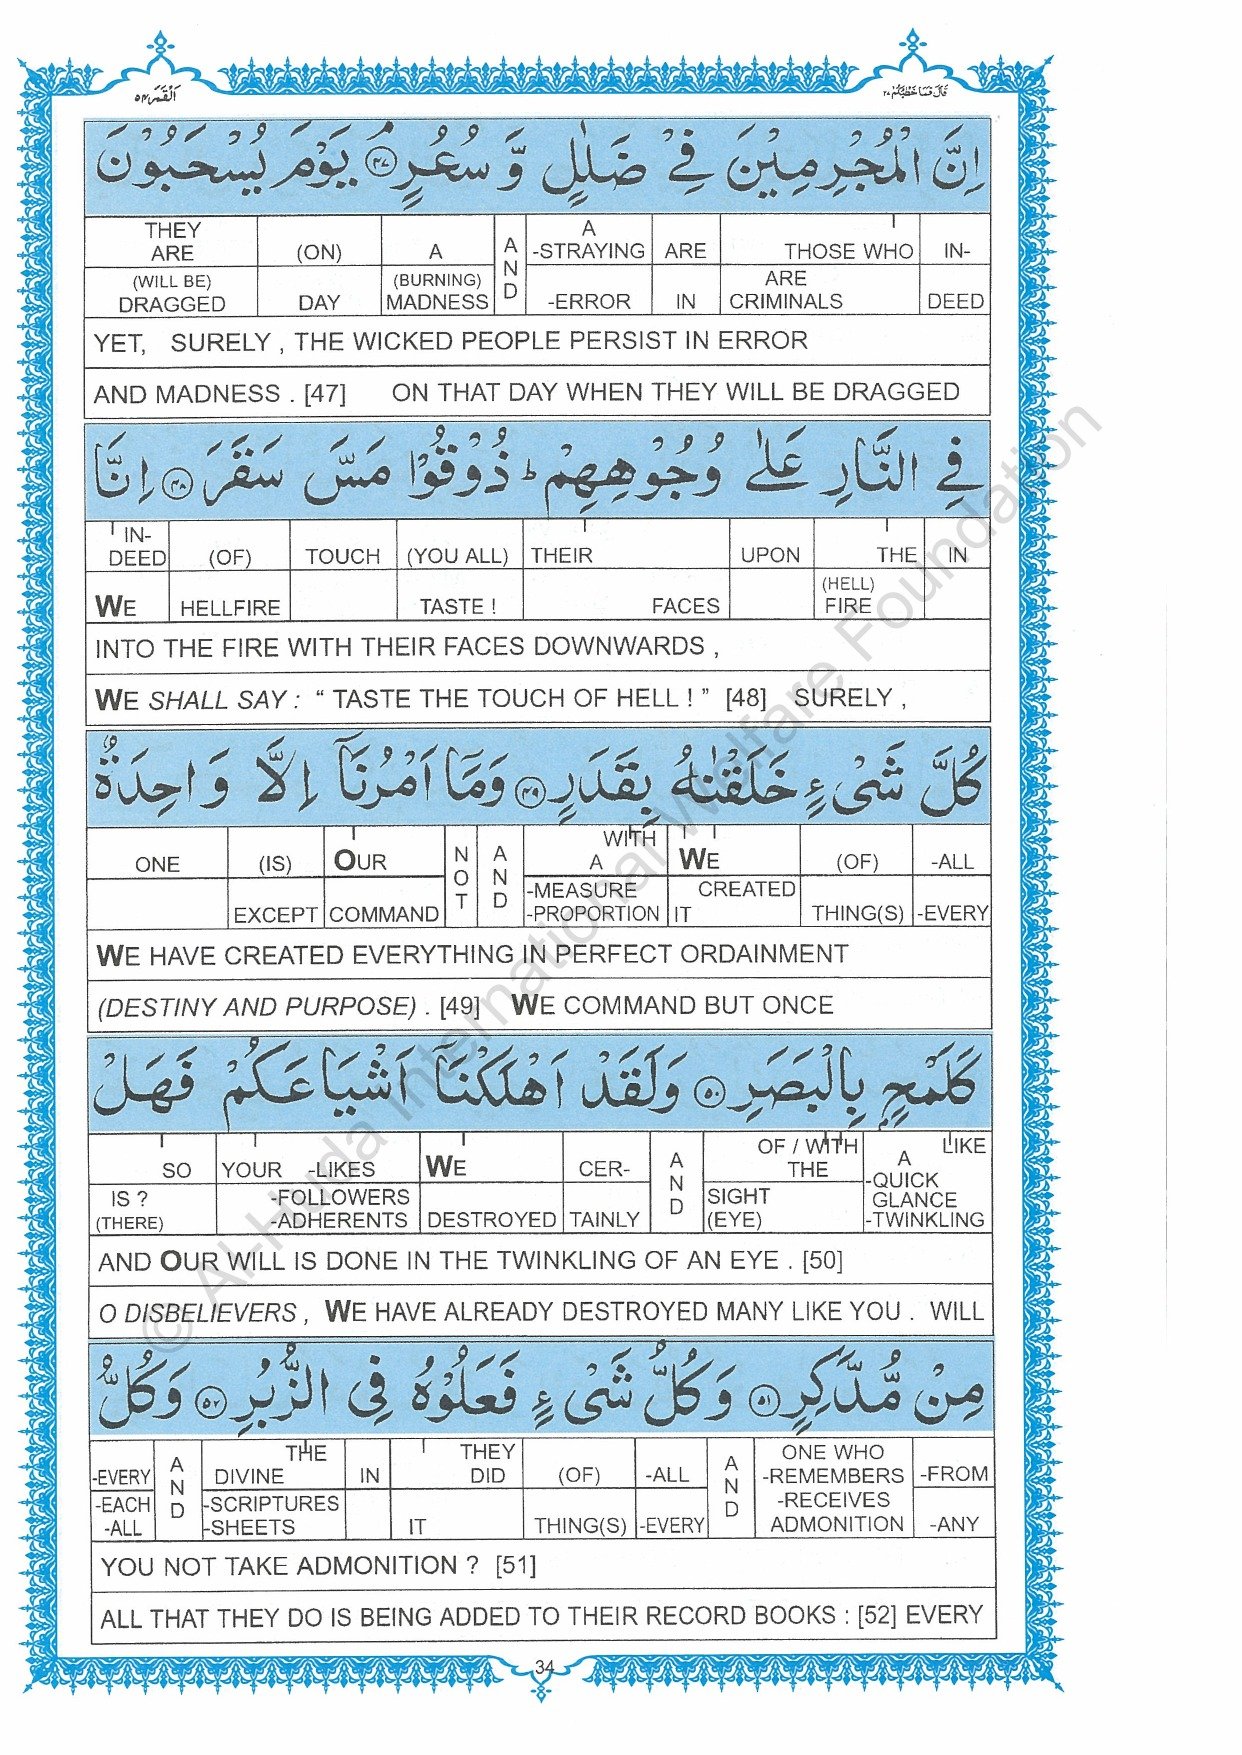 اَلْقَمَر ٥٤
قَالَ فَمَا خَطْبُكُمْ ٢٧
اِنَّ الْمُجْرِمِيْنَ فِيْ ضَلٰلٍ وَّ سُعُرٍ ۘ ٤٧ يَوْمَ يُسْحَبُوْنَ
THEY ARE (ON) A A N D A -STRAYING ARE THOSE WHO IN-
(WILL BE) DRAGGED DAY (BURNING) MADNESS -ERROR IN ARE CRIMINALS DEED
YET, SURELY , THE WICKED PEOPLE PERSIST IN ERROR
AND MADNESS . [47] ON THAT DAY WHEN THEY WILL BE DRAGGED
فِي النَّارِ عَلٰى وُجُوْهِهِمْ ؕ ذُوْقُوْا مَسَّ سَقَرَ ٤٨ اِنَّا
IN- DEED (OF) TOUCH (YOU ALL) THEIR UPON THE IN
WE HELLFIRE TASTE ! FACES (HELL) FIRE
INTO THE FIRE WITH THEIR FACES DOWNWARDS ,
WE SHALL SAY : “ TASTE THE TOUCH OF HELL ! ” [48] SURELY ,
كُلَّ شَيْءٍ خَلَقْنٰهُ بِقَدَرٍ ٤٩ وَمَاۤ اَمْرُنَاۤ اِلَّا وَاحِدَةٌ
ONE (IS) OUR N O T A N D WITH A WE (OF) -ALL
EXCEPT COMMAND -MEASURE -PROPORTION CREATED IT THING(S) -EVERY
WE HAVE CREATED EVERYTHING IN PERFECT ORDAINMENT
(DESTINY AND PURPOSE) . [49] WE COMMAND BUT ONCE
كَلَمْحٍۭ بِالْبَصَرِ ٥٠ وَلَقَدْ اَهْلَكْنَاۤ اَشْيَاعَكُمْ فَهَلْ
SO YOUR -LIKES WE CER- A N D OF / WITH THE LIKE A
IS ? (THERE) -FOLLOWERS -ADHERENTS DESTROYED TAINLY SIGHT (EYE) -QUICK GLANCE -TWINKLING
AND OUR WILL IS DONE IN THE TWINKLING OF AN EYE . [50]
O DISBELIEVERS , WE HAVE ALREADY DESTROYED MANY LIKE YOU . WILL
مِنْ مُّدَّكِرٍ ٥١ وَكُلُّ شَيْءٍ فَعَلُوْهُ فِي الزُّبُرِ ٥٢ وَكُلُّ
-EVERY A N D THE DIVINE IN THEY DID (OF) -ALL A N D ONE WHO -REMEMBERS -FROM
-EACH -ALL -SCRIPTURES -SHEETS IT THING(S) -EVERY -RECEIVES ADMONITION -ANY
YOU NOT TAKE ADMONITION ? [51]
ALL THAT THEY DO IS BEING ADDED TO THEIR RECORD BOOKS : [52] EVERY
34
© Al-Huda International Welfare Foundation